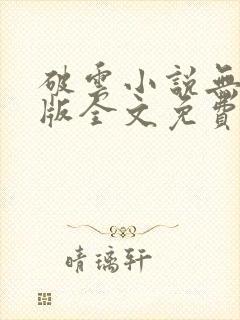 破雲小說無
版全文免費
晴璃軒